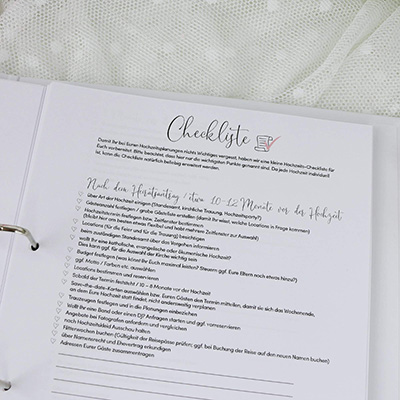 Checkliste
Damit Ihr bei Euren Hochzeitsplanungen nichts Wichtiges vergesst, haben wir eine kleine Hochzeits-Checkliste für
Euch vorbereitet. Bitte beachtet, dass hier nur die wichtigsten Punkte genannt sind. Da jede Hochzeit individuell
ist, kann die Checkliste natürlich beliebig erweitert werden.
Nach dem Heiratsantrag / etwa 10-12 Monate vor der Hochzeit
über Art der Hochzeit einigen (Standesamt, kirchliche Trauung, Hochzeitsparty?)
Gästeanzahl festlegen / grobe Gästeliste erstellen (damit Ihr wisst, welche Locations in Frage kommen)
Hochzeitstermin festlegen bzw. Zeitfenster bestimmen
(bleibt hier am besten etwas flexibel und habt mehrere Zeitfenster zur Auswahl)
Locations (für die Feier und für die Trauung) besichtigen
beim zuständigen Standesamt über das Vorgehen informieren
wollt Ihr eine katholische, evangelische oder ökumenische Hochzeit?
Dies kann ggf. für die Auswahl der Kirche wichtig sein
Budget festlegen (was könnt Ihr Euch maximal leisten? Steuern ggf. Eure Eltern noch etwas hinzu?)
ggf. Motto / Farben etc. auswählen
Locations bestimmen und reservieren
Sobald der Termin feststeht / 10 - 8 Monate vor der Hochzeit
Save-the-date-Karten auswählen bzw. Euren Gästen den Termin mitteilen, damit sie sich das Wochenende,
an dem Eure Hochzeit statt findet, nicht anderweitig verplanen
Trauzeugen festlegen und in die Planungen einbeziehen
Wollt Ihr eine Band oder einen DJ? Anfragen starten und ggf. vorreservieren
Angebote bei Fotografen anfordern und vergleichen
nach Hochzeitskleid Ausschau halten
Flitterwochen buchen (Gültigkeit der Reisepässe prüfen; ggf. bei Buchung der Reise auf den neuen Namen buchen)
über Namensrecht und Ehevertrag erkundigen
Adressen Eurer Gäste zusammentragen